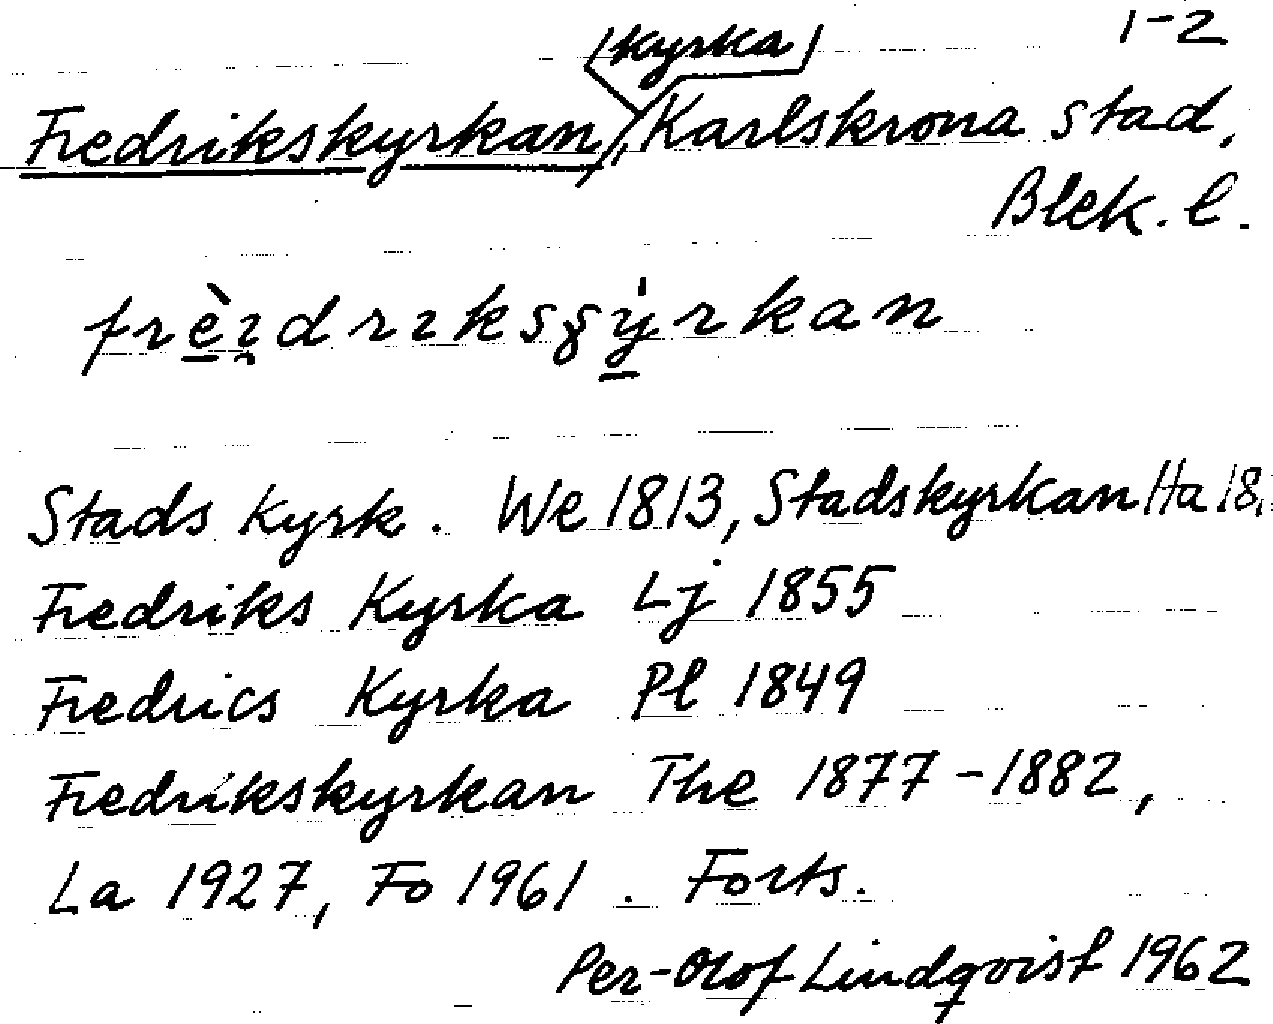 1-2
Fredrikskyrkan, (kyrka) Karlskrona stad,
Blek. l.
Stads Kyrk. We 1813, Stadskyrkan Ha
Fredriks Kyrka Lj 1855
Fredrics Kyrka Pl 1849
Fredrikskyrkan The 1877-1882,
La 1927, Fo 1961. Forts.
Per-Olof Lindqvist 1962